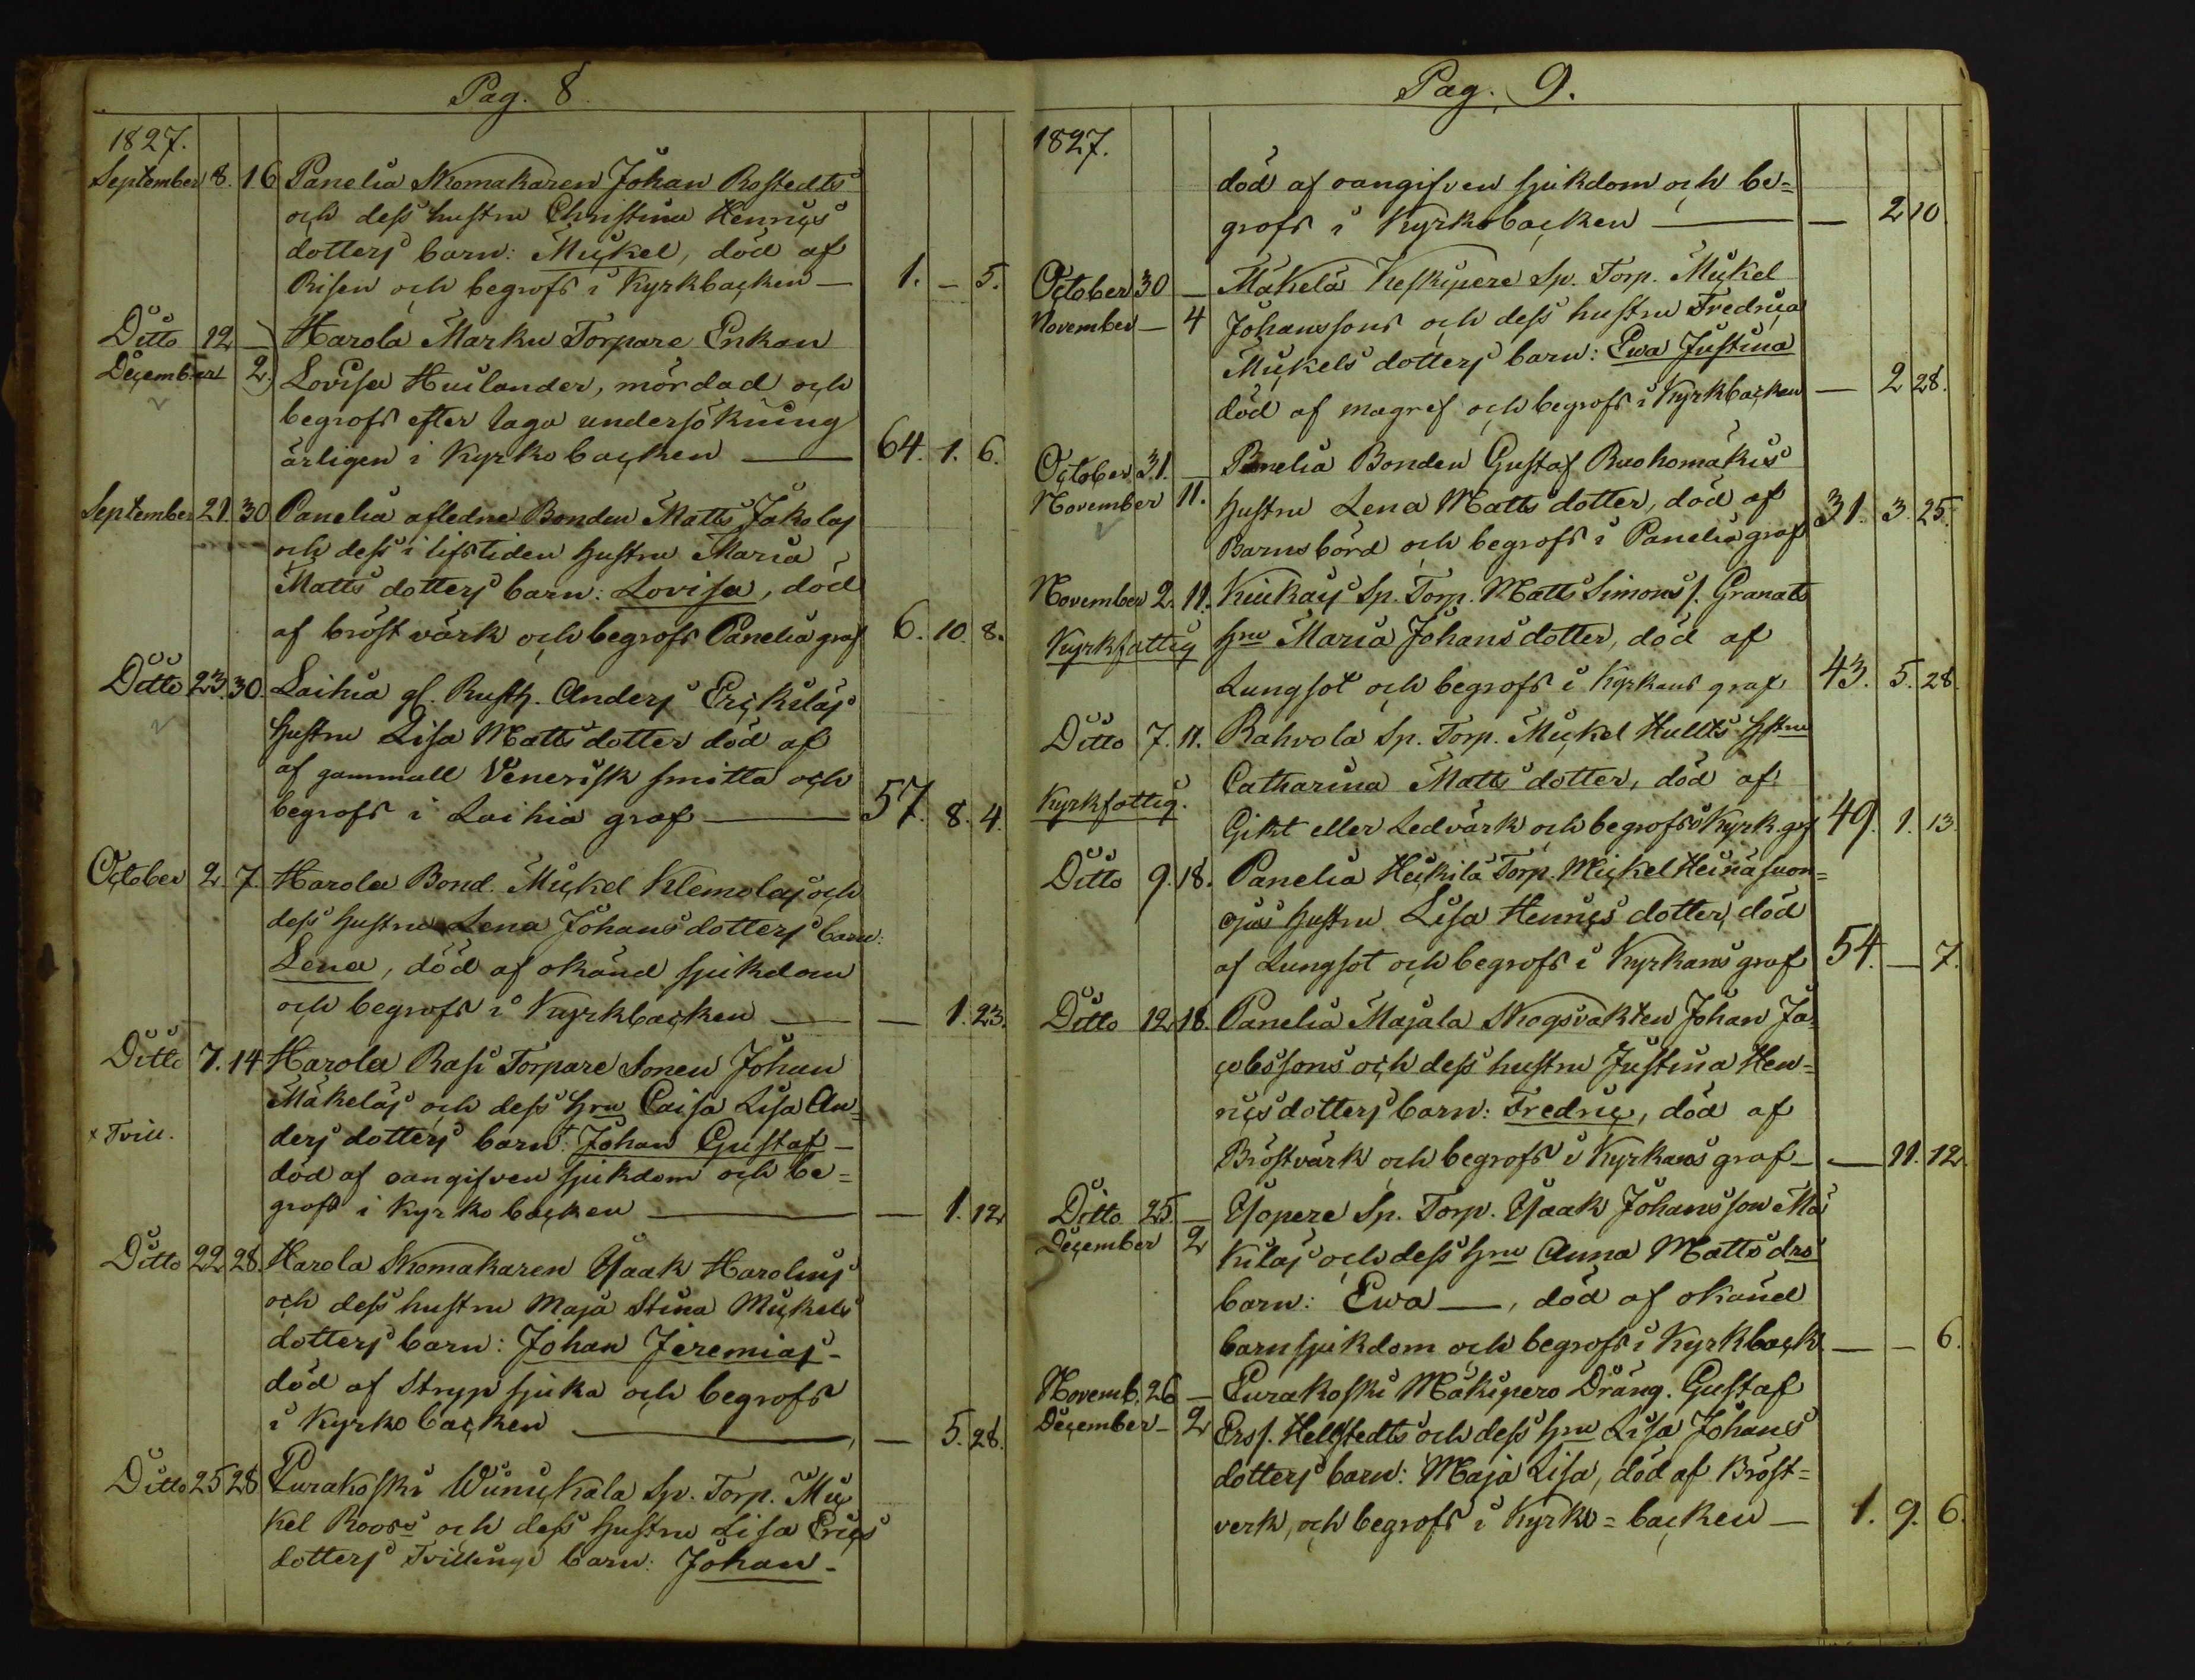 Pag. 8.
1827.
September 8. 16 Panelia Skomakaren Johan Rostedts
och dess hustru Christina Henrics
dotters barn: Mickel, död af
Risen och begrofs i Kyrkbacken — 1. — 5.
Ditto 12 — Harola Marku Torpare Enkan
December 2. Lovisa Huslander, mördad och
begrofs efter laga undersökning
ärligen i Kyrko backen — 64. 1. 6.
September 21. 30 Panelia afledne Bonden Matts Jakolas
och dess i lifstiden hustru Maria
Matts dotters barn: Lovisa, död
af bröst värk och begrofs Panelia graf 6. 10. 8.
Ditto 23. 30. Laihia gl. Rusth. Anders Erickilas
hustru Lisa Matts dotter död af
af gammall Venerisk smitta och
begrofs i Laihia graf — 57. 8. 4.
October 2. 7. Harola Bond. Mickel Klemolas och
dess hustru Lena Johans dotters barn:
Lena, död af okänd sjukdom
och begrofs i Kyrkbacken — — 1. 23.
Ditto 7. 14 Harola Rasi Torpare Sonen Johan
Mäkeläs och dess hru Caisa Lisa An-
x Tvill. ders dotters barn: + Johan Gustaf —
död af oangifven sjukdom och be=
grofs i Kyrko backen — — 1. 12
Ditto 22 28. Harola Skomakaren Isaak Harolins
och dess hustru Maja Stina Mickels
dotters barn: Johan Jeremias -
död af Stryp sjuka och begrofs
i Kyrko backen — — 5. 28.
Ditto 25 28 Eurakoski Wuinickala Sp. Torp. Mic
kel Roos's och dess hustru Lisa Erics
dotters Tvillinge barn: Johan -
Pag. 9.
1827.
död af oangifven sjukdom och be=
grofs i Kyrkobacken — — 2 10.
October 30 — Mäkelä Keskipere Sp. Torp. Mickel
November — 4 Johanssons och dess hustru Fredrica
Mickels dotters barn: Ewa Justina
död af magref och begrofs i Kyrkbacken — 2 28.
October 31. — Panelia Bonden Gustaf Ruohomäkis
November 11. hustru Lena Matts dotter, död af
Barnsbörd och begrofs i Panelia graf 31. 3. 25.
November 2. 11. Kiukais Sp. Torp. Matts Simons s. Granats
Kyrkfattig hru Maria Johans dotter, död af
Lungsot och begrofs i Kyrkans graf 43. 5. 28.
Ditto 7. 11. Rahvola Sp. Torp. Mickel Hullts hstru
Catharina Matts dotter, död af
Kyrkfattig. Gikt eller Ledvärk och begrofs i Kyrk. grf 49. 1. 13.
Ditto 9. 18. Panelia Heikilä Torp. Mickel Heinäsuon=
ojas hustru Lisa Henrics dotter, död
af Lungsot och begrofs i Kyrkans graf 54. — 7.
Ditto 12 18. Panelia Majala Skogsvakten Johan Ja-
cobssons och dess hustru Justina Hen=
rics dotters barn: Fredric, död af
Bröstvärk och begrofs i Kyrkans graf — — 11. 12.
Ditto 25. — Isopere Sp. Torp. Isaak Johansson Mä
December 2 kiläs och dess hru Anna Matts drs
barn: Ewa —, död af okänd
barnsjukdom och begrofs i Kyrkback — — 6.
Novemb. 26 — Eurakoski Mäkipero Dräng. Gustaf
December — 2 Erss. Hellstedts och dess hru Lisa Johans
dotters barn: Maja Lisa, död af Bröst=
verk, och begrofs i Kyrko = backen — 1. 9. 6.